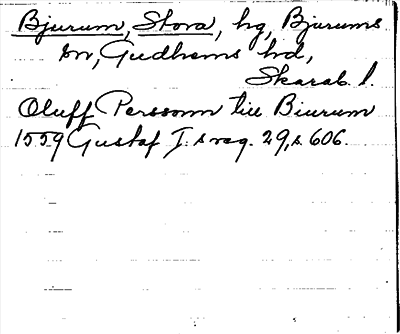 Bjurum, Stora, hg, Bjurums
sn, Gudhems hd,
Skarab. l.
Oluff Personn till Biurum
1559 Gustaf I:s reg. 29, s. 606.